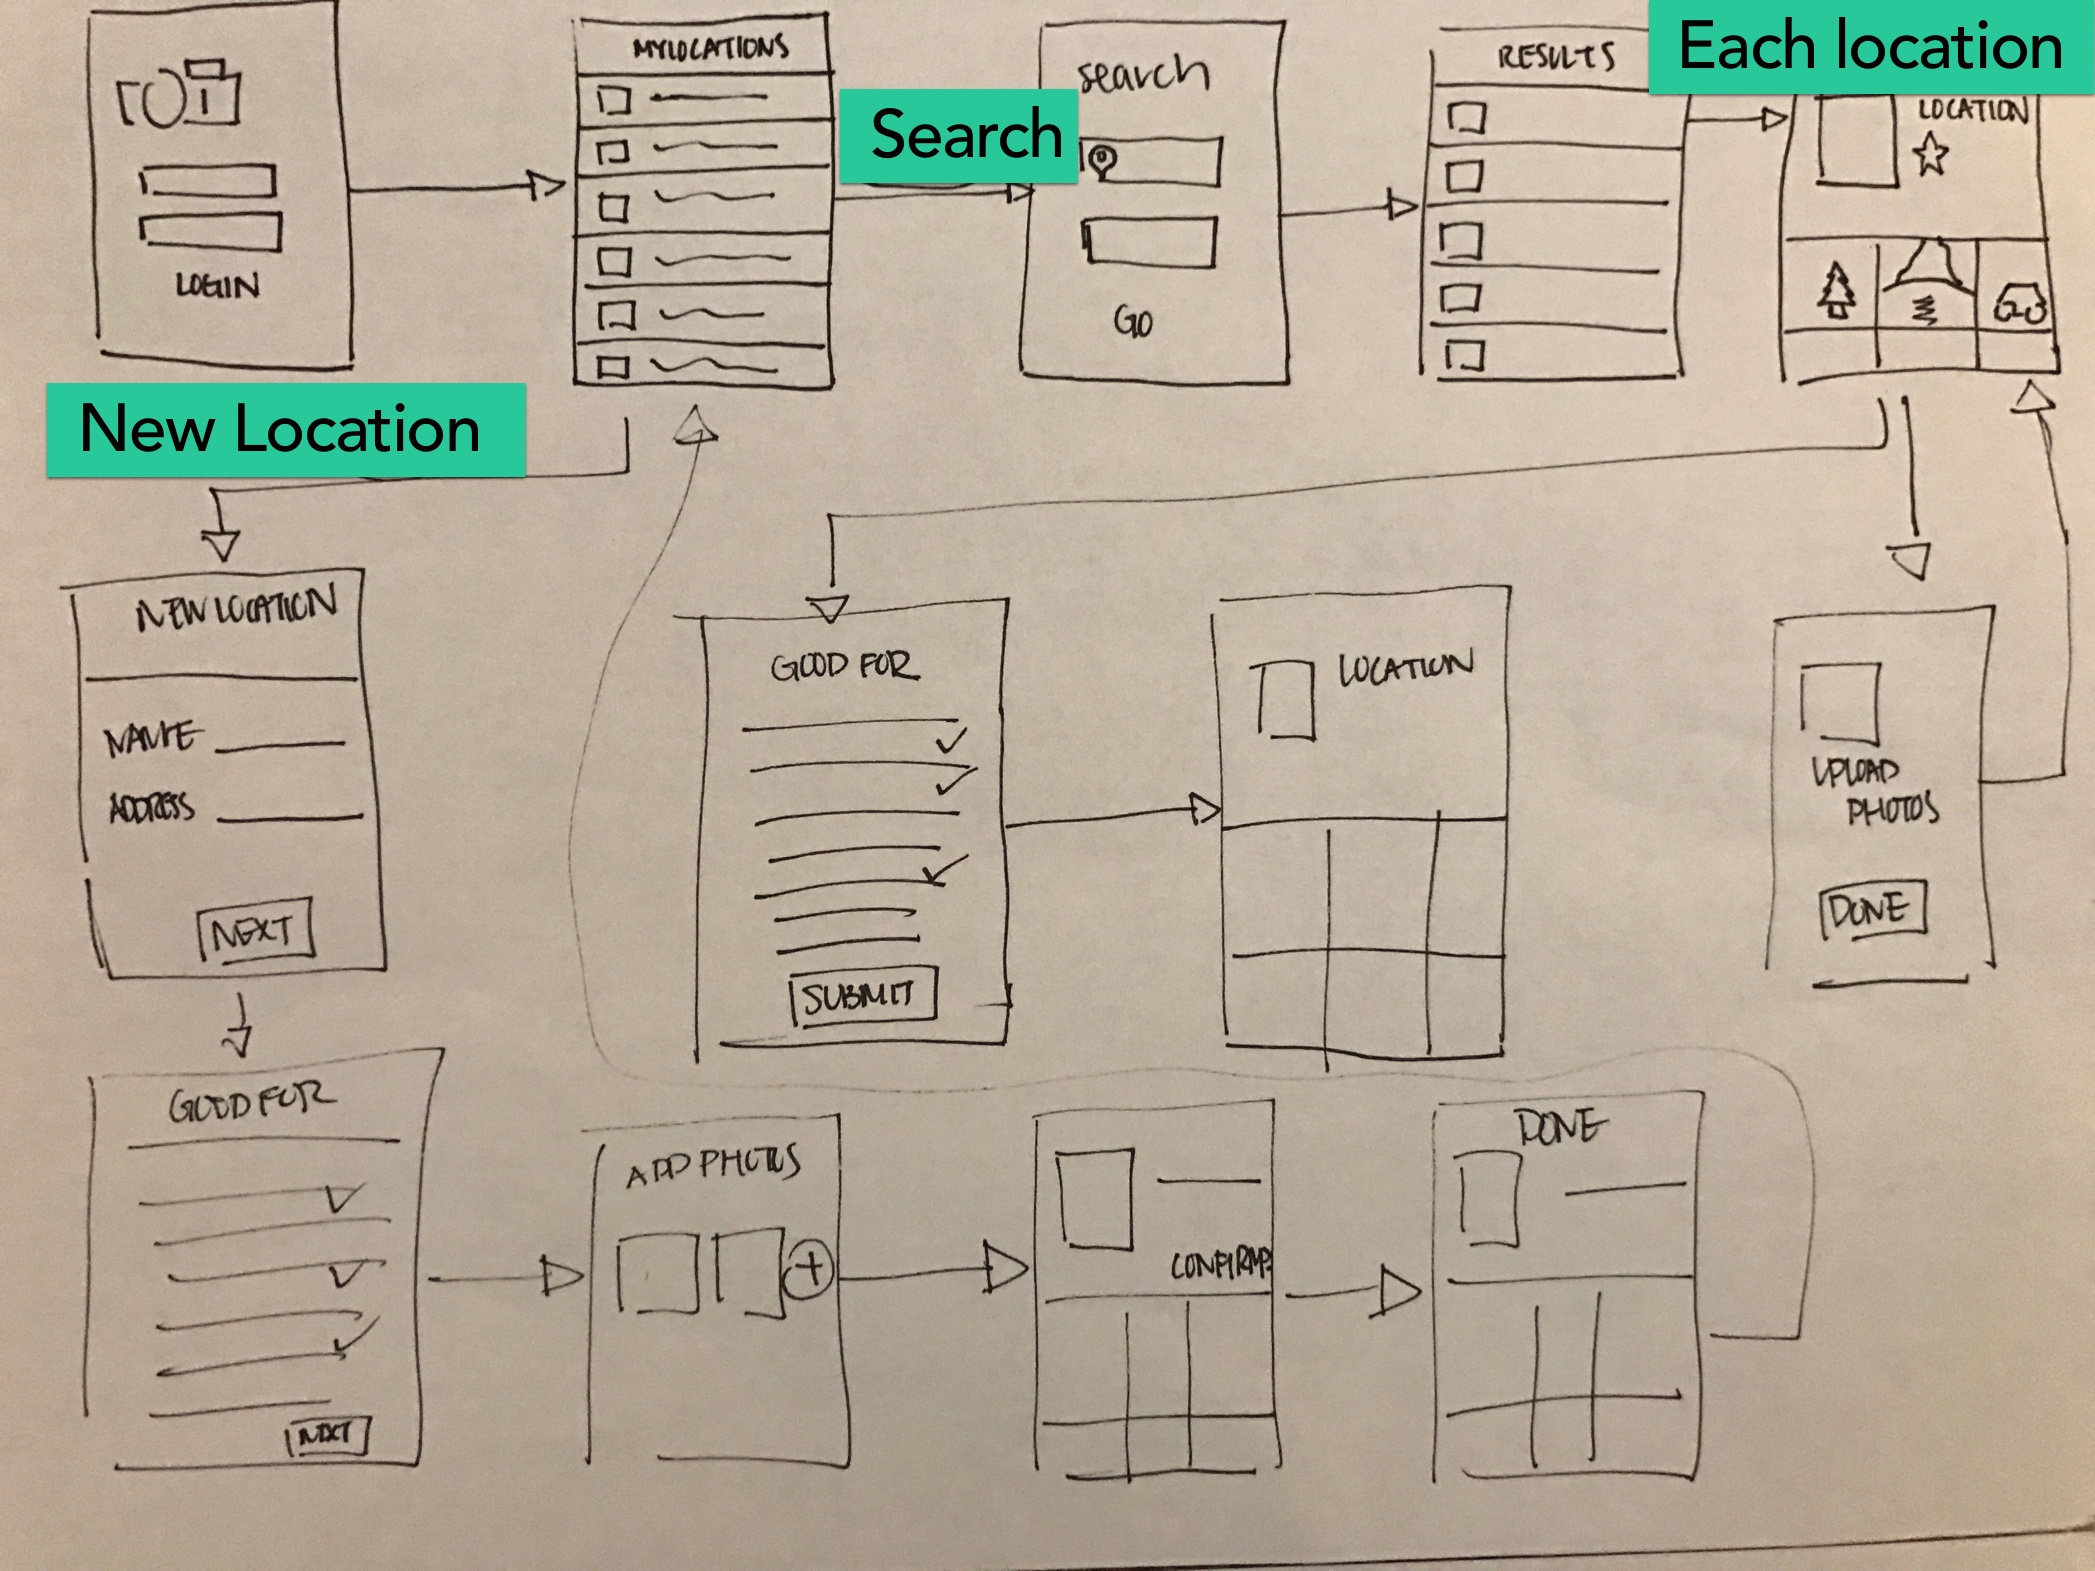 LOGIN
MY LOCATIONS
Search
search
GO
RESULTS
Each location
LOCATION
New Location
NEW LOCATION
NAME
ADDRESS
NEXT
GOOD FOR
SUBMIT
LOCATION
UPLOAD
PHOTOS
DONE
GOOD FOR
NEXT
ADD PHOTOS
CONFIRM?
DONE